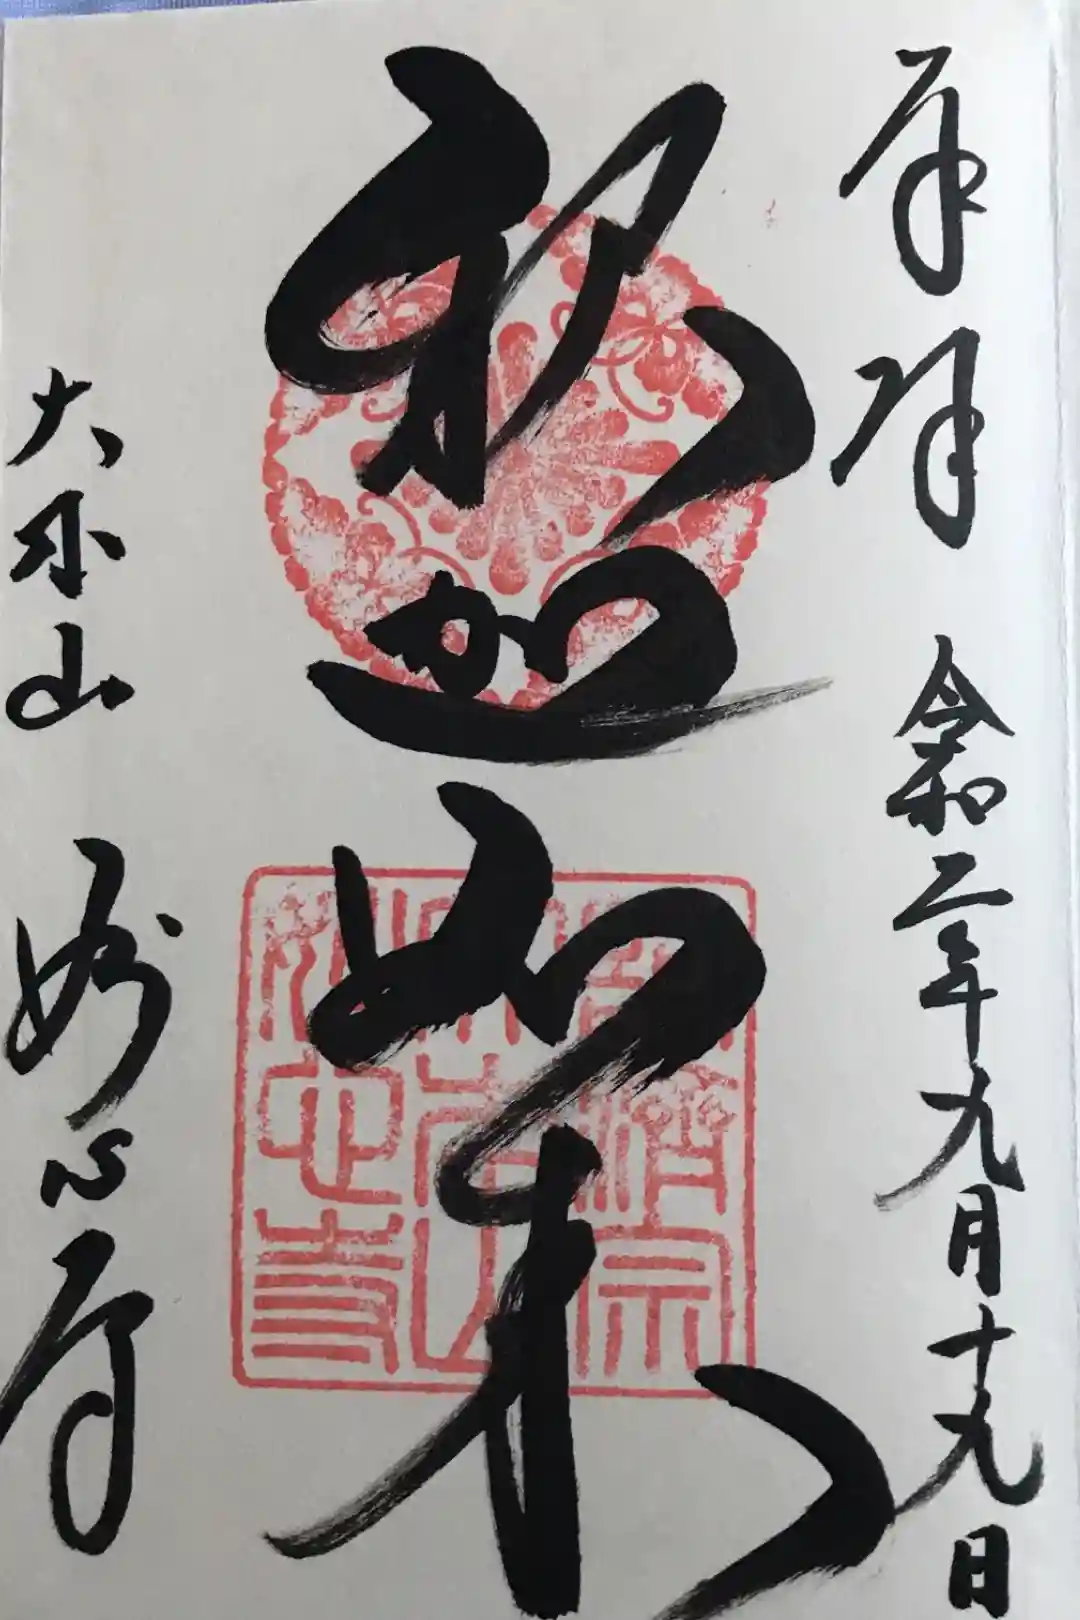 奉拝 令和二年九月十九日
釈迦如来
大本山 妙心寺
臨濟宗
大本山
妙心寺